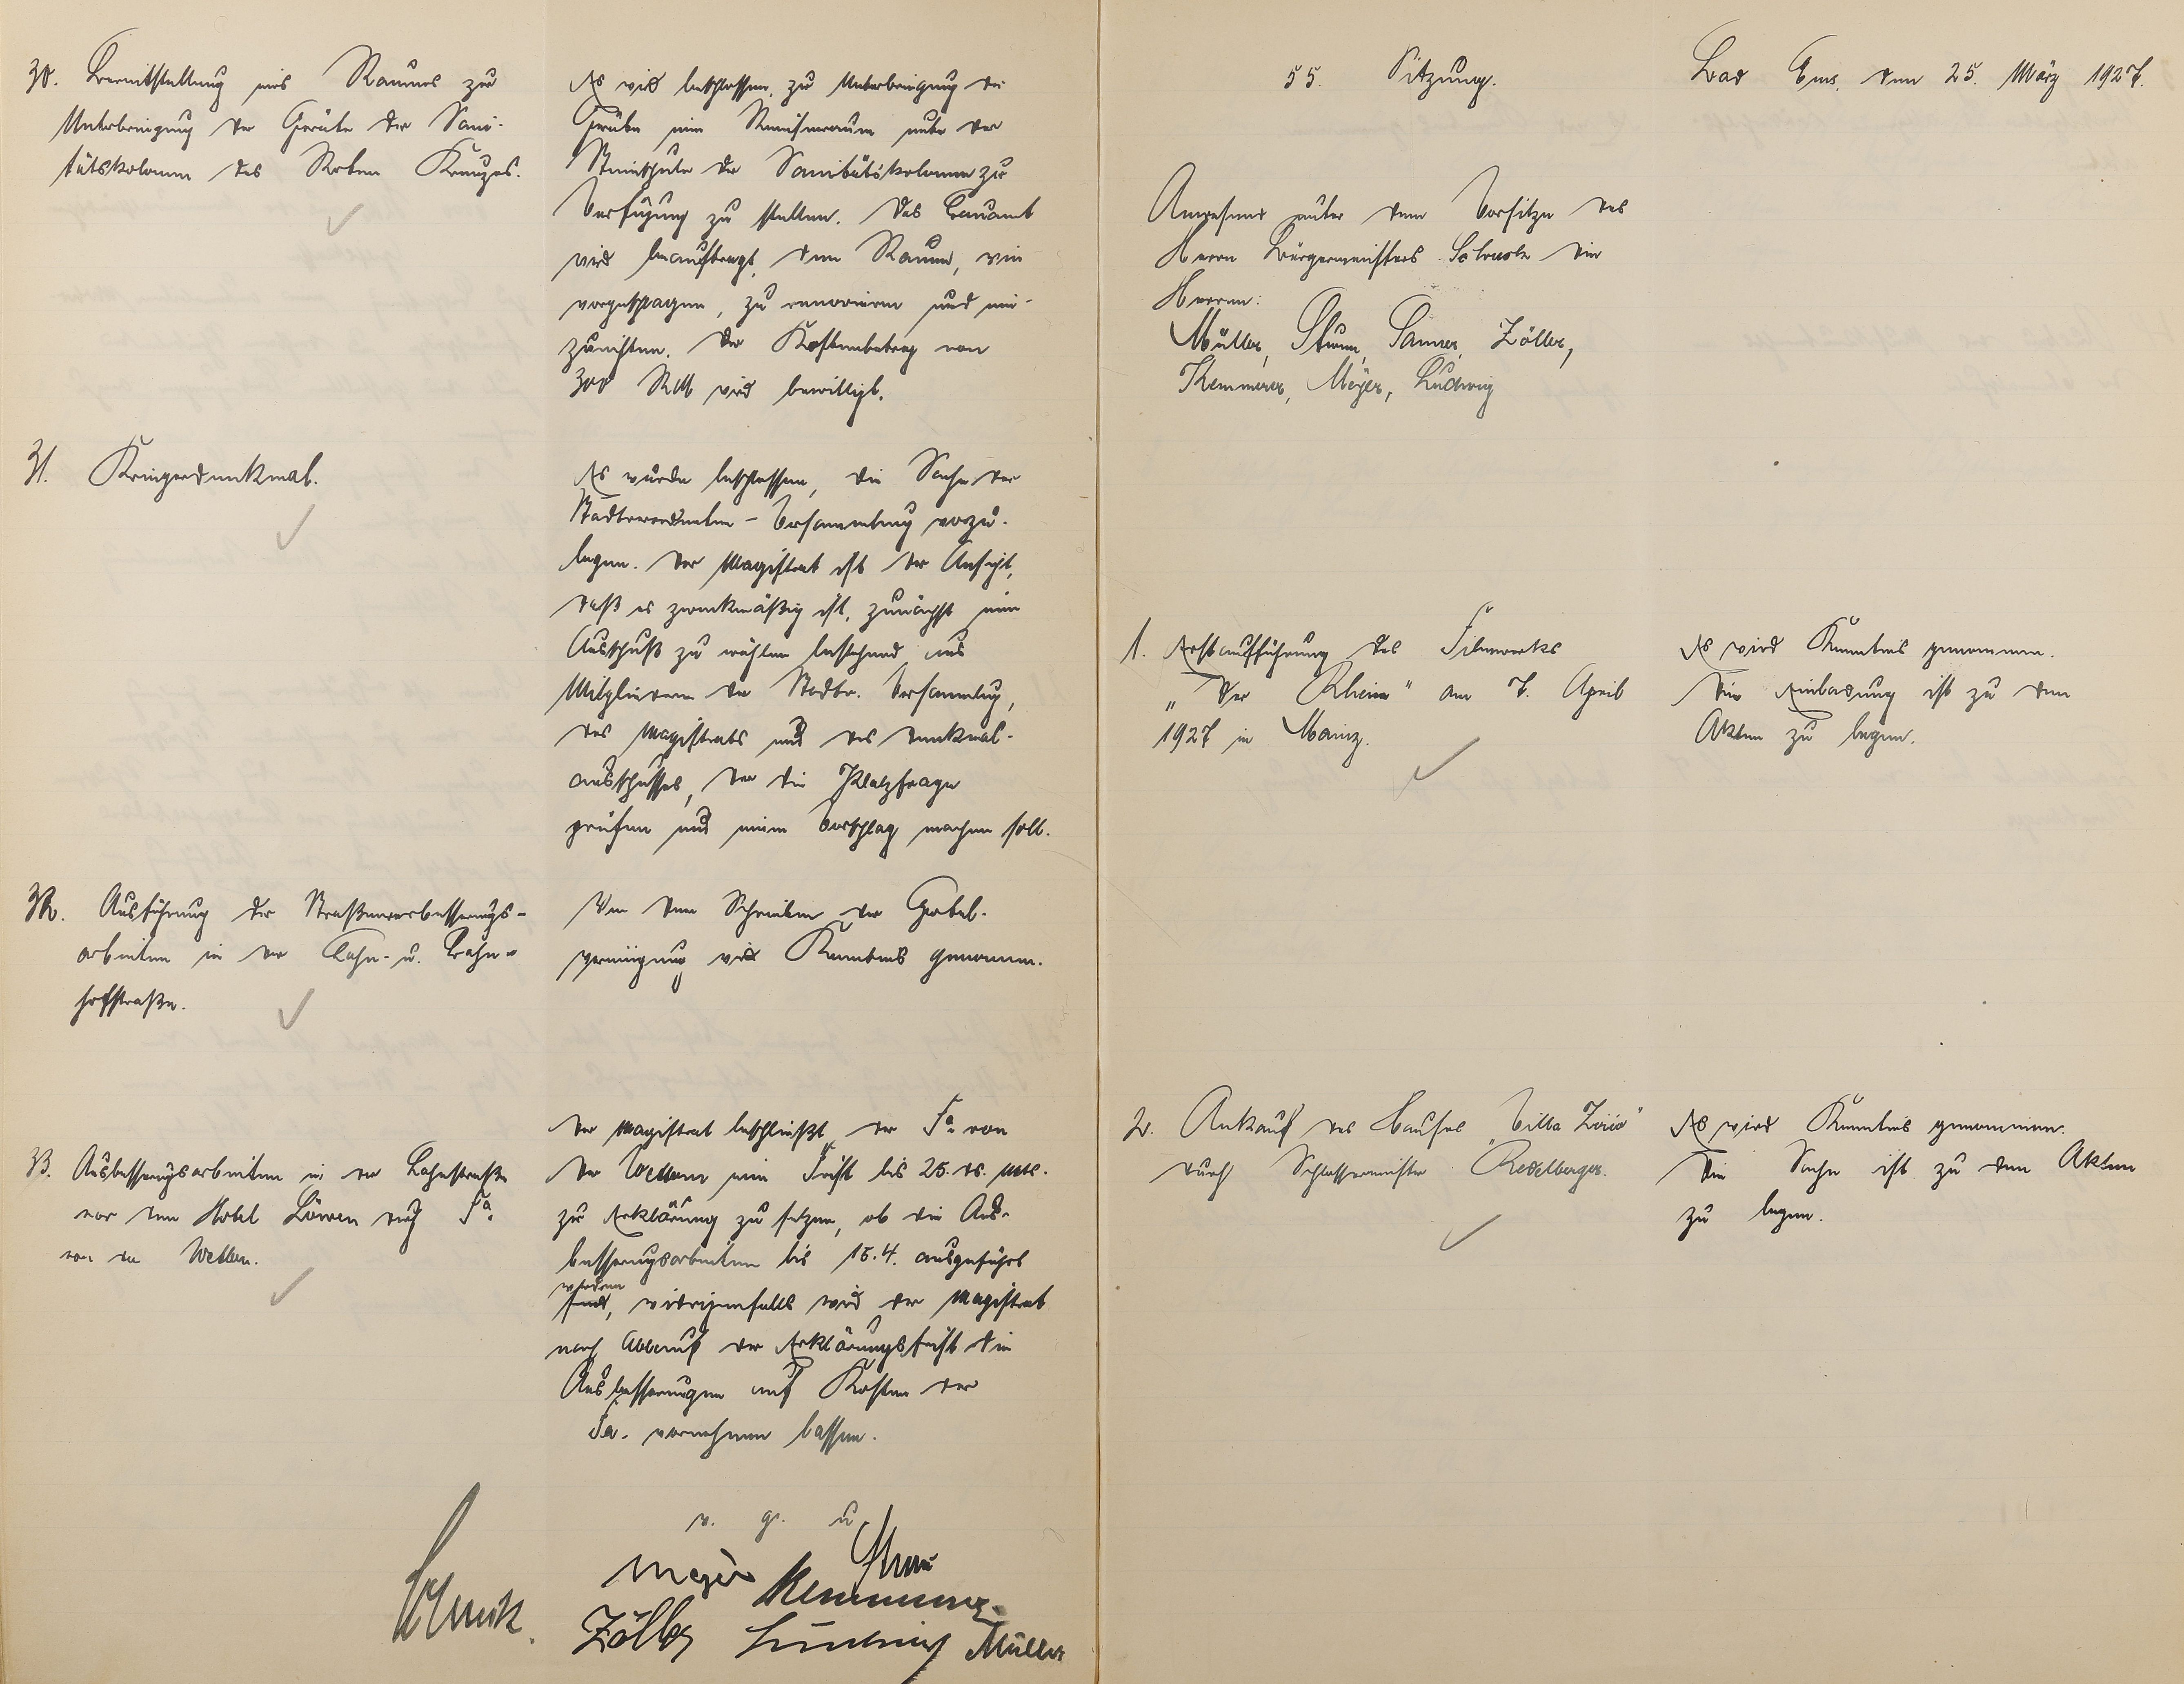 30. Bereitstellung eines Raumes zur
Unterbringung der Geräte der Sani-
tätskolonne des Roten Kreuzes.
Es wird beschlossen, zur Unterbringung der
Geräte einen Remisenraum unter der
Steinschule der Sanitätskolonne zur
Verfügung zu stellen. Das Bauamt
wird beauftragt, den Raum, wie
vorgeschlagen, zu renovieren und ein-
zurichten. Der Kostenbetrag von
300 RM wird bewilligt.
31. Kriegerdenkmal.
Es wurde beschlossen, die Sache der
Stadtverordneten-Versammlung vorzu-
legen. Der Magistrat ist der Ansicht,
daß es zweckmäßig ist, zunächst einen
Ausschuß zu wählen bestehend aus
Mitgliedern der Stadtv. Versammlung,
des Magistrats und des Denkmal-
ausschusses, der die Platzfrage
prüfen und einen Vorschlag machen soll.
32. Ausführung der Straßenverbesserungs-
arbeiten in der Lahn- u. Bahn-
hofstraße.
Von dem Schreiben der
wird Kenntnis genommen.
33. Ausbesserungsarbeiten in der Lahnstraße
vor dem Hotel Löwen durch Fa.
von der Wettern.
Der Magistrat beschließt, der Fa. von
der Wettern eine Frist bis 25. ds. Mts.
zur Erklärung zu setzen, ob die Aus-
besserungsarbeiten bis 15.4. ausgeführt
werden
sind, widrigenfalls wird der Magistrat
nach Ablauf der Erklärungsfrist die
Ausbesserungen auf Kosten der
Fa. vornehmen lassen.
v. g. u.
Schenck.
Meyer Sturm
Kemmerer
Zöller Ludwig Müller
55. Sitzung.
Bad Ems, den 25. März 1927.
Anwesend unter dem Vorsitze des
Herrn Bürgermeisters Schenck die
Herren:
Müller, Sturm, Sanner, Zöller,
Kemmerer, Meyer, Ludwig
1. Erstaufführung des Filmwerks
"Der Rhein" am 7. April
1927 in Mainz.
Es wird Kenntnis genommen.
Die Einladung ist zu den
Akten zu legen.
2. Ankauf des Hauses "Villa
durch Schlossermeister Redelberger.
Es wird Kenntnis genommen.
Die Sache ist zu den Akten
zu legen.